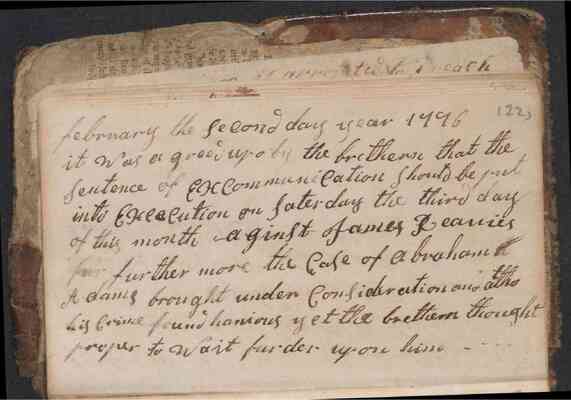 appointed to preach
february the Second day year 1796
122
it was agreed upo by the brethern that the
sentence of excommunication Should be put
into Execution on Saterday the third day
of this month aginst James Reavies
for further more the Case of Abraham
Adams brought under Consideration and altho
his Crime found hanious yet the brethern thought
proper to wait furder upon him - - - -